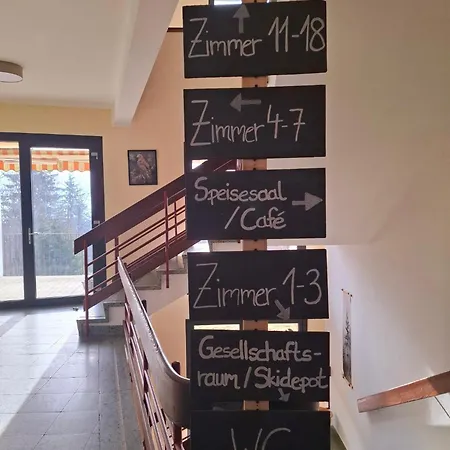 Zimmer 11-18
Zimmer 4-7
Speisesaal
/Café
Zimmer 1-3
Gesellschafts-
raum/Skidepot
WC